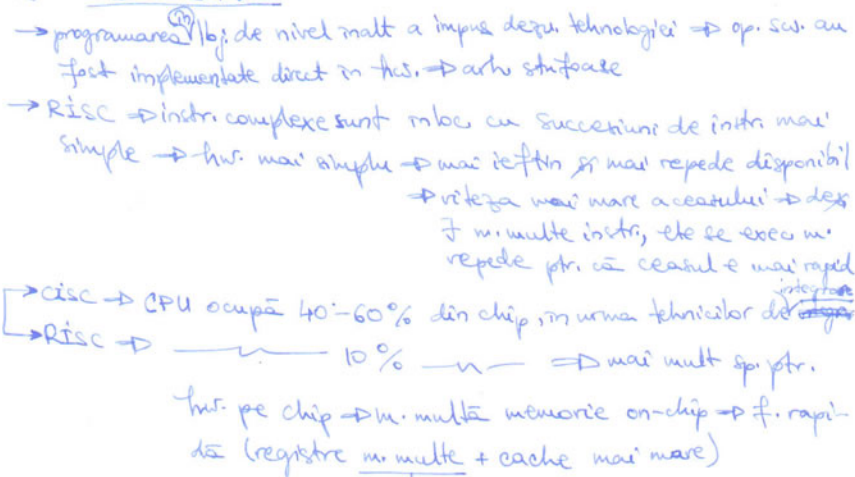 → programarea (în) lbj. de nivel inalt a impus dezv. tehnologiei ⇒ op. sw. au
fost implementate direct in hw. ⇒ arh. stufoase
→ RISC ⇒ instr. complexe sunt inloc cu succesiuni de instr. mai
simple ⇒ hw. mai simplu ⇒ mai ieftin și mai repede disponibil
⇒ viteza mai mare a ceasului ⇒ deși
∃ m. multe instr., ele se exec m.
repede ptr. că ceasul e mai rapid
→ CISC ⇒ CPU ocupă 40-60% din chip, in urma tehnicilor de integrare
→ RISC ⇒ —〃— 10% —〃— ⇒ mai mult sp. ptr.
hw. pe chip ⇒ m. multă memorie on-chip ⇒ f. rapi-
dă (registre m. multe + cache mai mare)